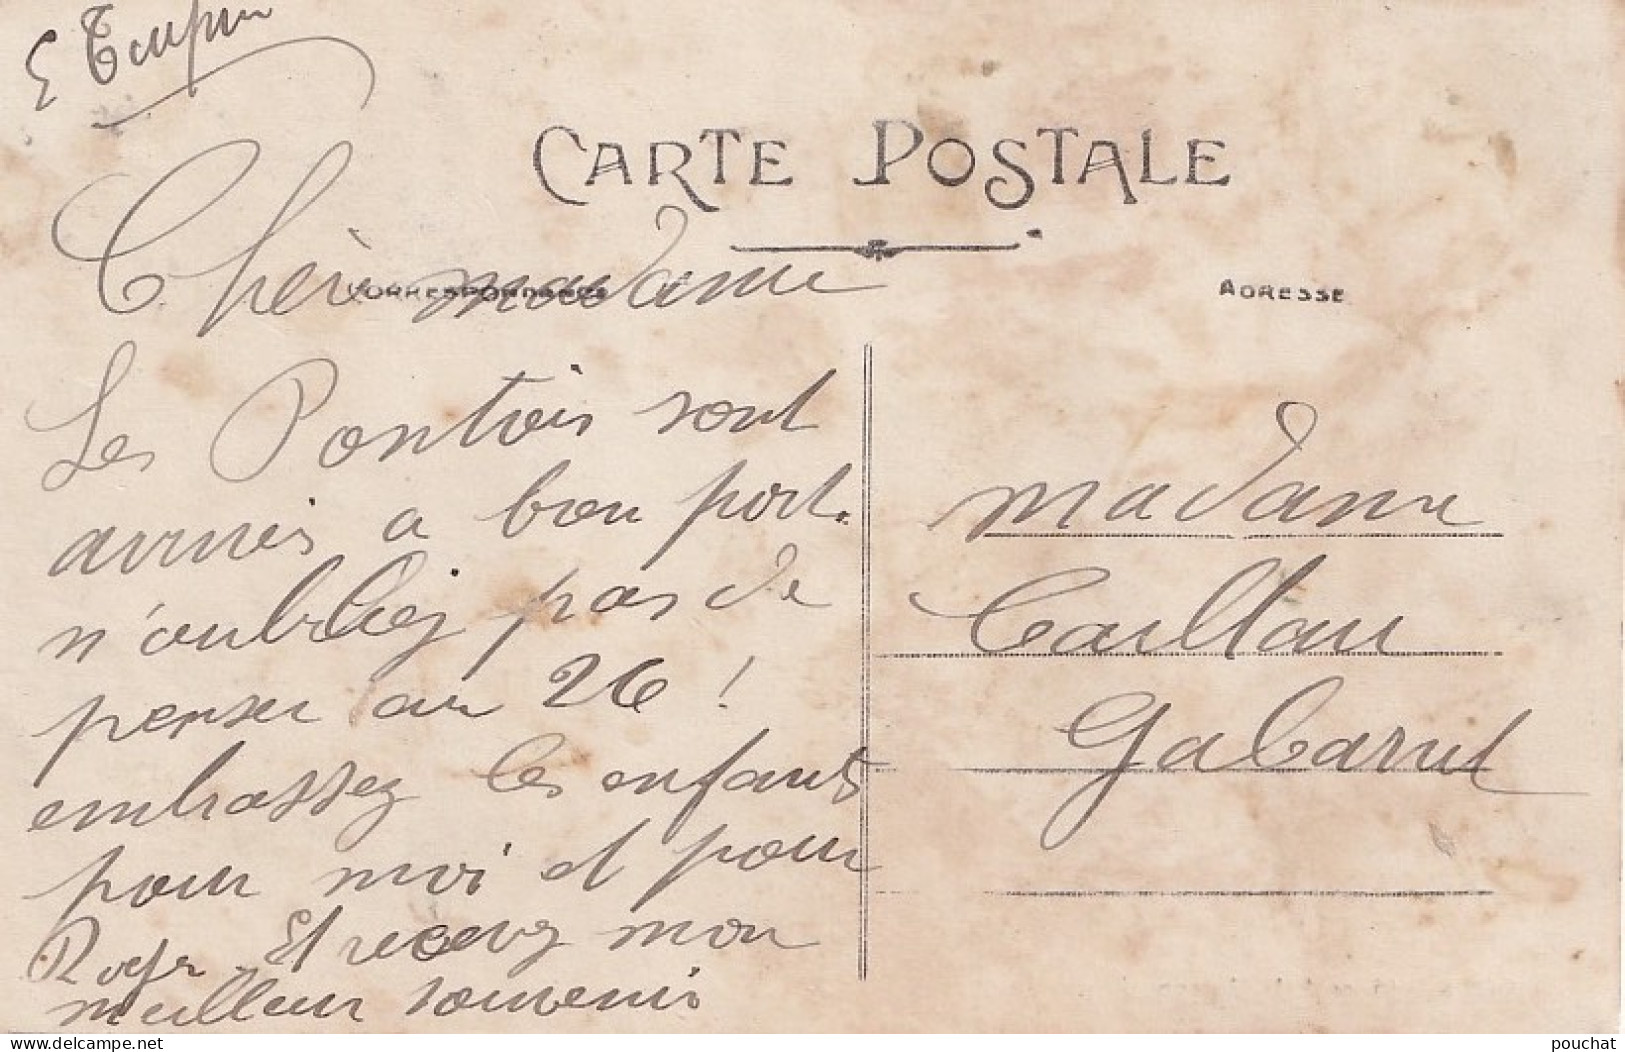 E Turpin
CARTE POSTALE
Chère madame
CORRESPONDANCE
ADRESSE
Les Pontois sont
arrivés a bon port.
n'oubliez pas de
penser au 26 !
embrassez les enfants
pour moi et pour
Roger. Et recevez mon
meilleur souvenir
madame
Caillau
Gabarret
delcampe.net
pouchat